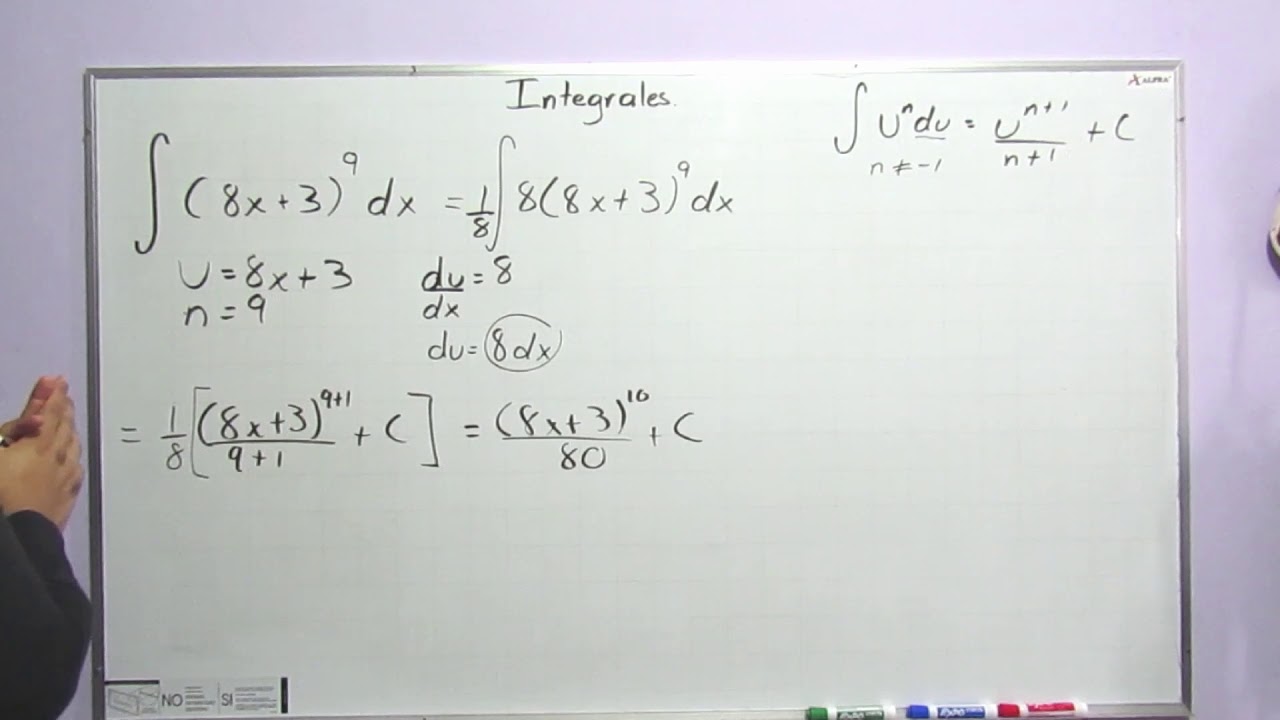 Integrales.
∫ uⁿ du = uⁿ⁺¹/(n+1) + C
n ≠ -1
∫ (8x+3)⁹ dx = 1/8 ∫ 8(8x+3)⁹ dx
u = 8x+3
n = 9
du/dx = 8
du = 8dx
= 1/8 [(8x+3)⁹⁺¹/(9+1) + C] = (8x+3)¹⁰/80 + C
ALFRA
NO SI
EXPO